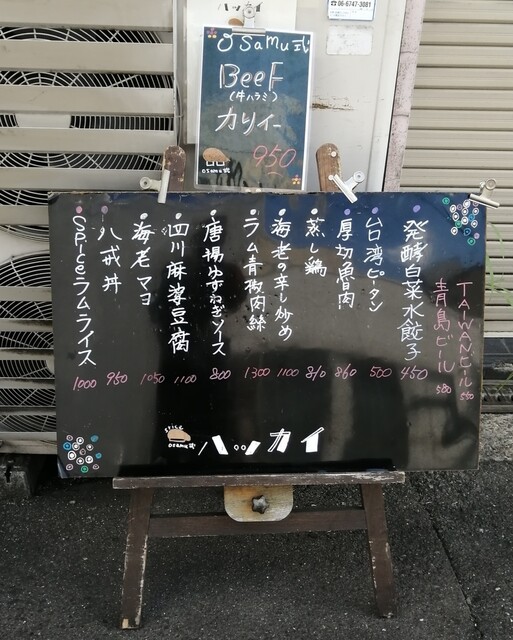 06-6747-3081
OSaMu式
BeeF
(牛ハラミ)
カリィー
950
OSAMU式
TAIWANビール 550
青島ビール 580
発酵白菜水餃子 450
台湾ピータン 500
厚切魯肉 860
蒸し鶏 810
海老の辛し炒め 1100
ラム青椒肉絲 1300
唐揚ゆずねぎソース 800
四川麻婆豆腐 1100
海老マヨ 1050
八戒丼 950
Spiceラムライス 1000
SPICE
OSAMU式
ハッカイ